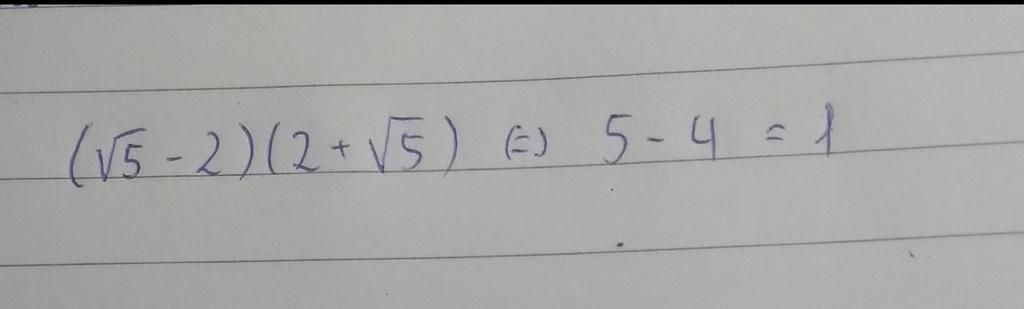 (√5 - 2)(2 + √5) (=) 5 - 4 = 1